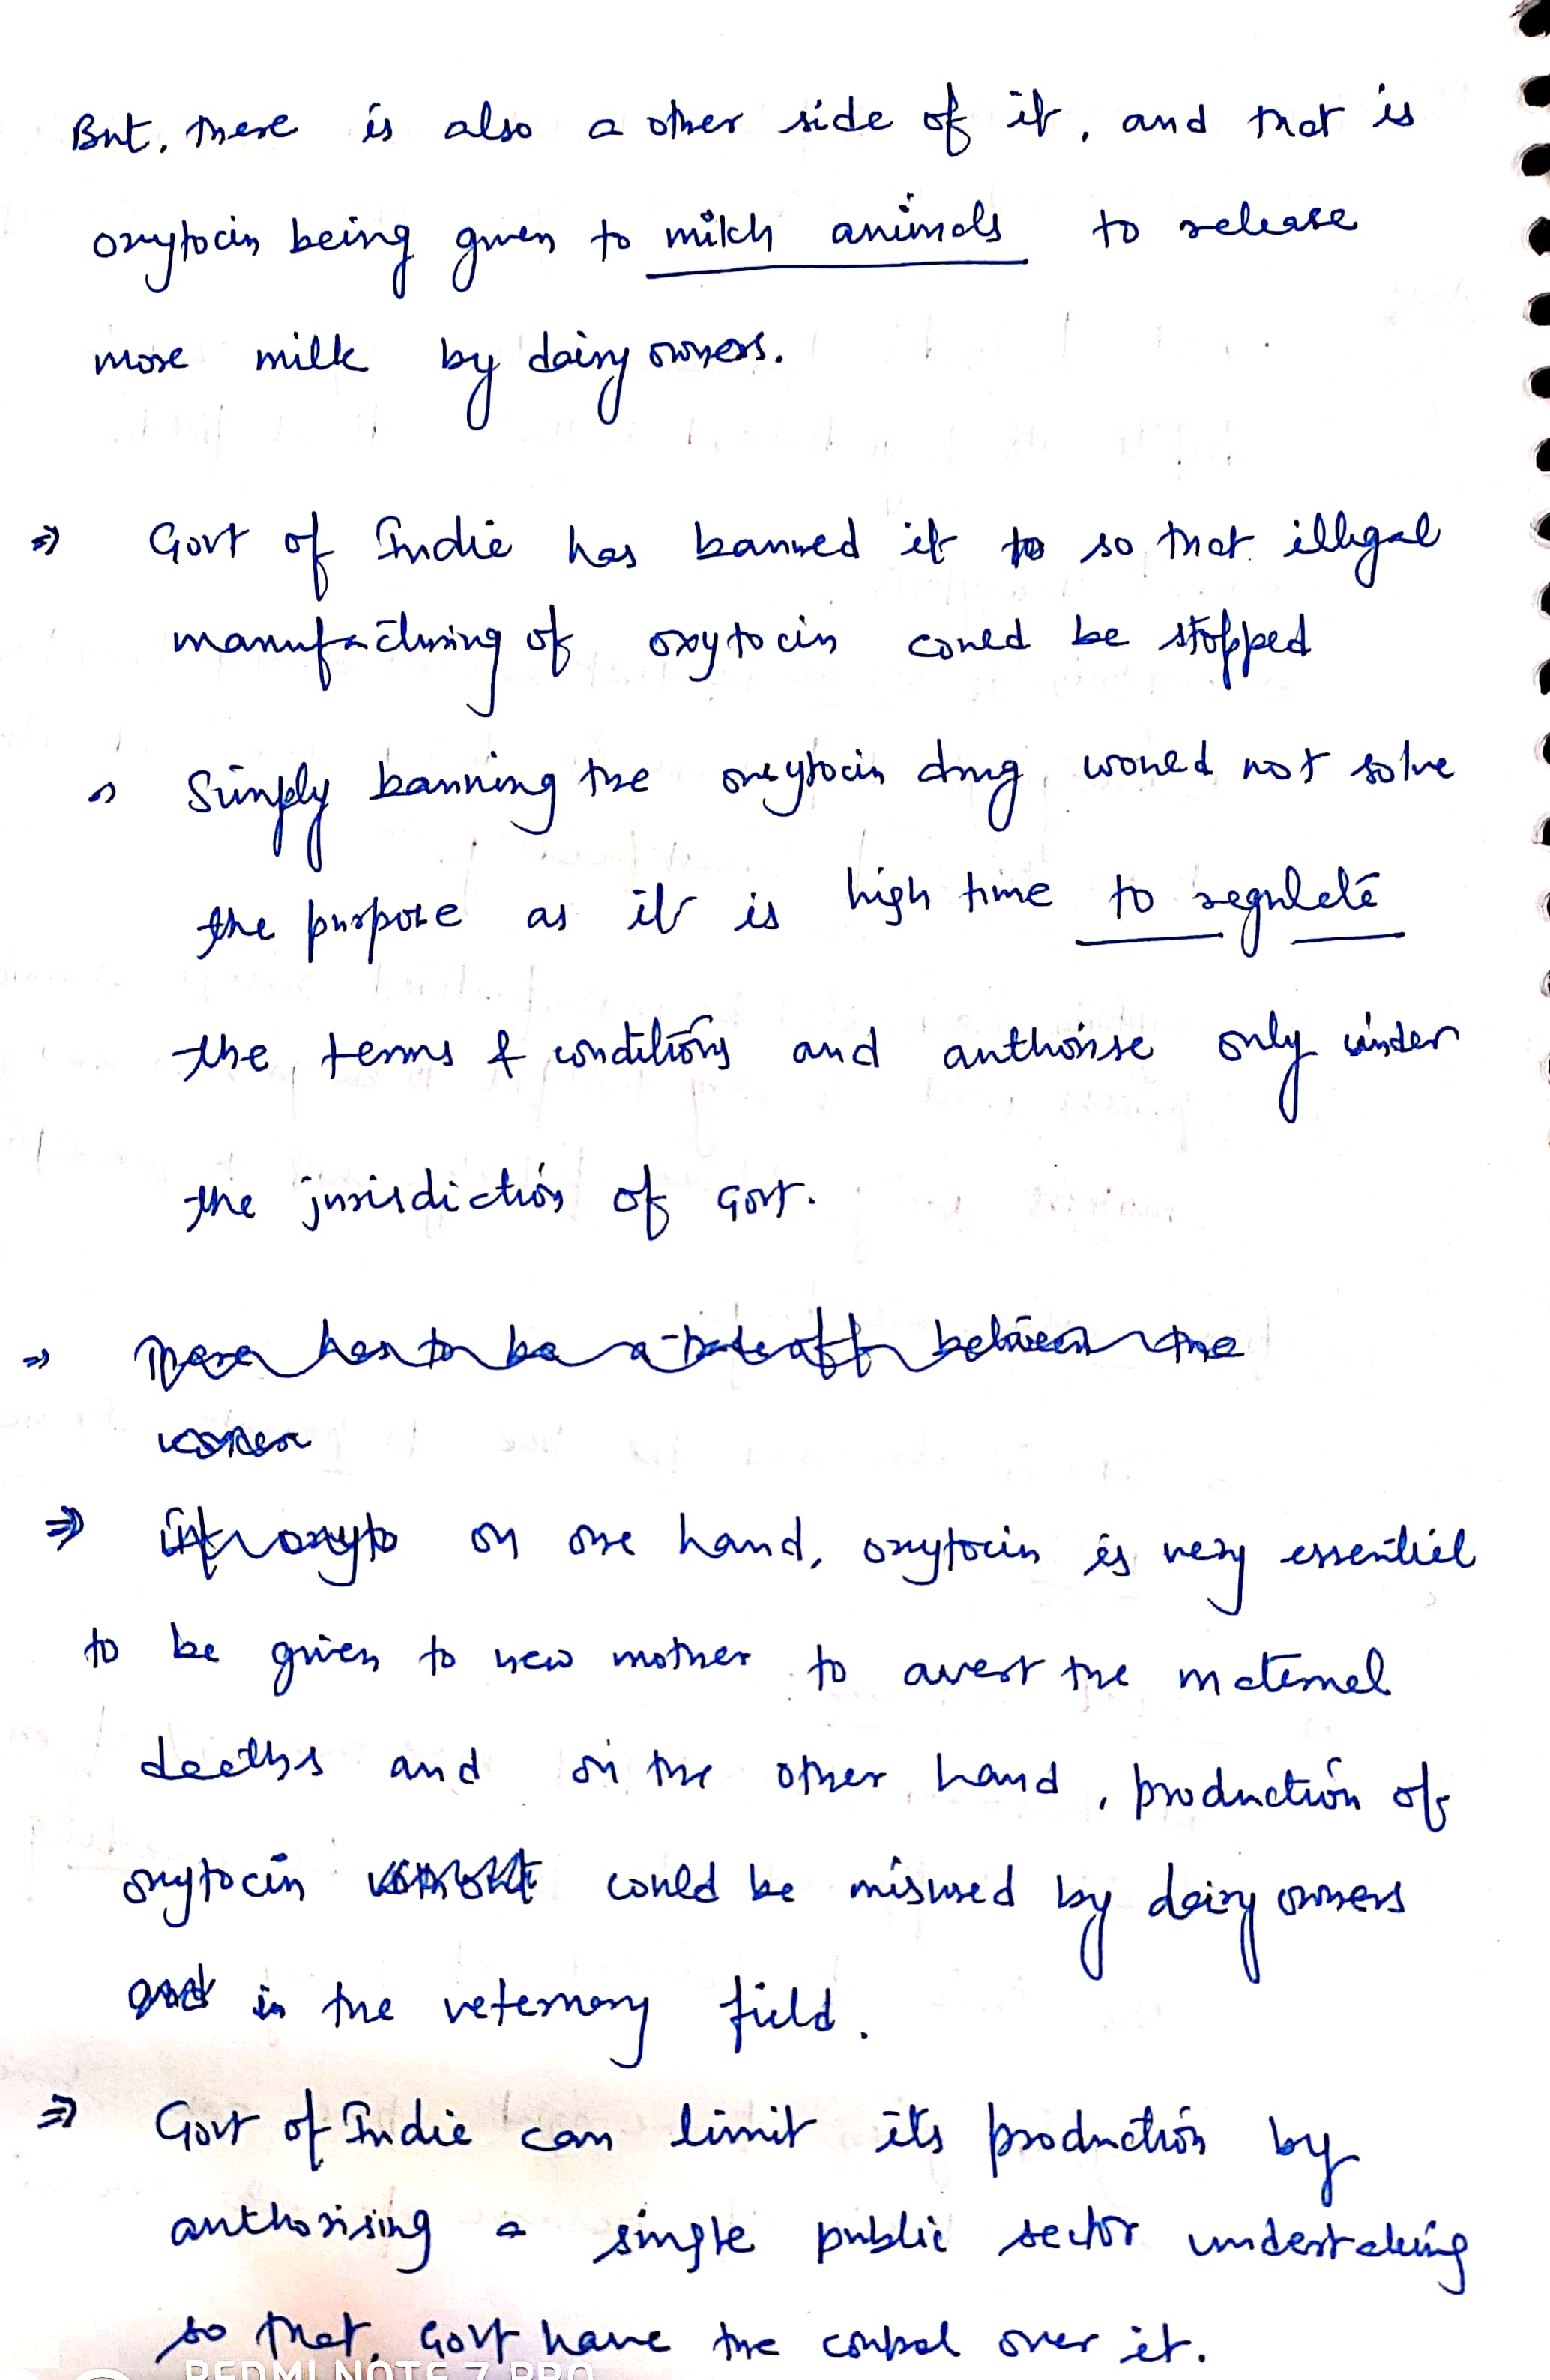 But, there is also a other side of it, and that is
oxytocin being given to milch animals to release
more milk by dairy owners.
⇒ Govt of India has banned it to so that illegal
manufacturing of oxytocin could be stopped
Simply banning the oxytocin drug would not solve
the purpose as it is high time to regulate
the terms & conditions and authorise only under
the jurisdiction of Govt.
⇒ There has to be a trade off between the
⇒ on one hand, oxytocin is very essential
to be given to new mother to avert the maternal
deaths and on the other hand, production of
oxytocin could be misused by dairy owners
and in the veternary field.
⇒ Govt of India can limit its production by
authorising a single public sector undertaking
so that, Govt have the control over it.
REDMI NOTE 7 PRO